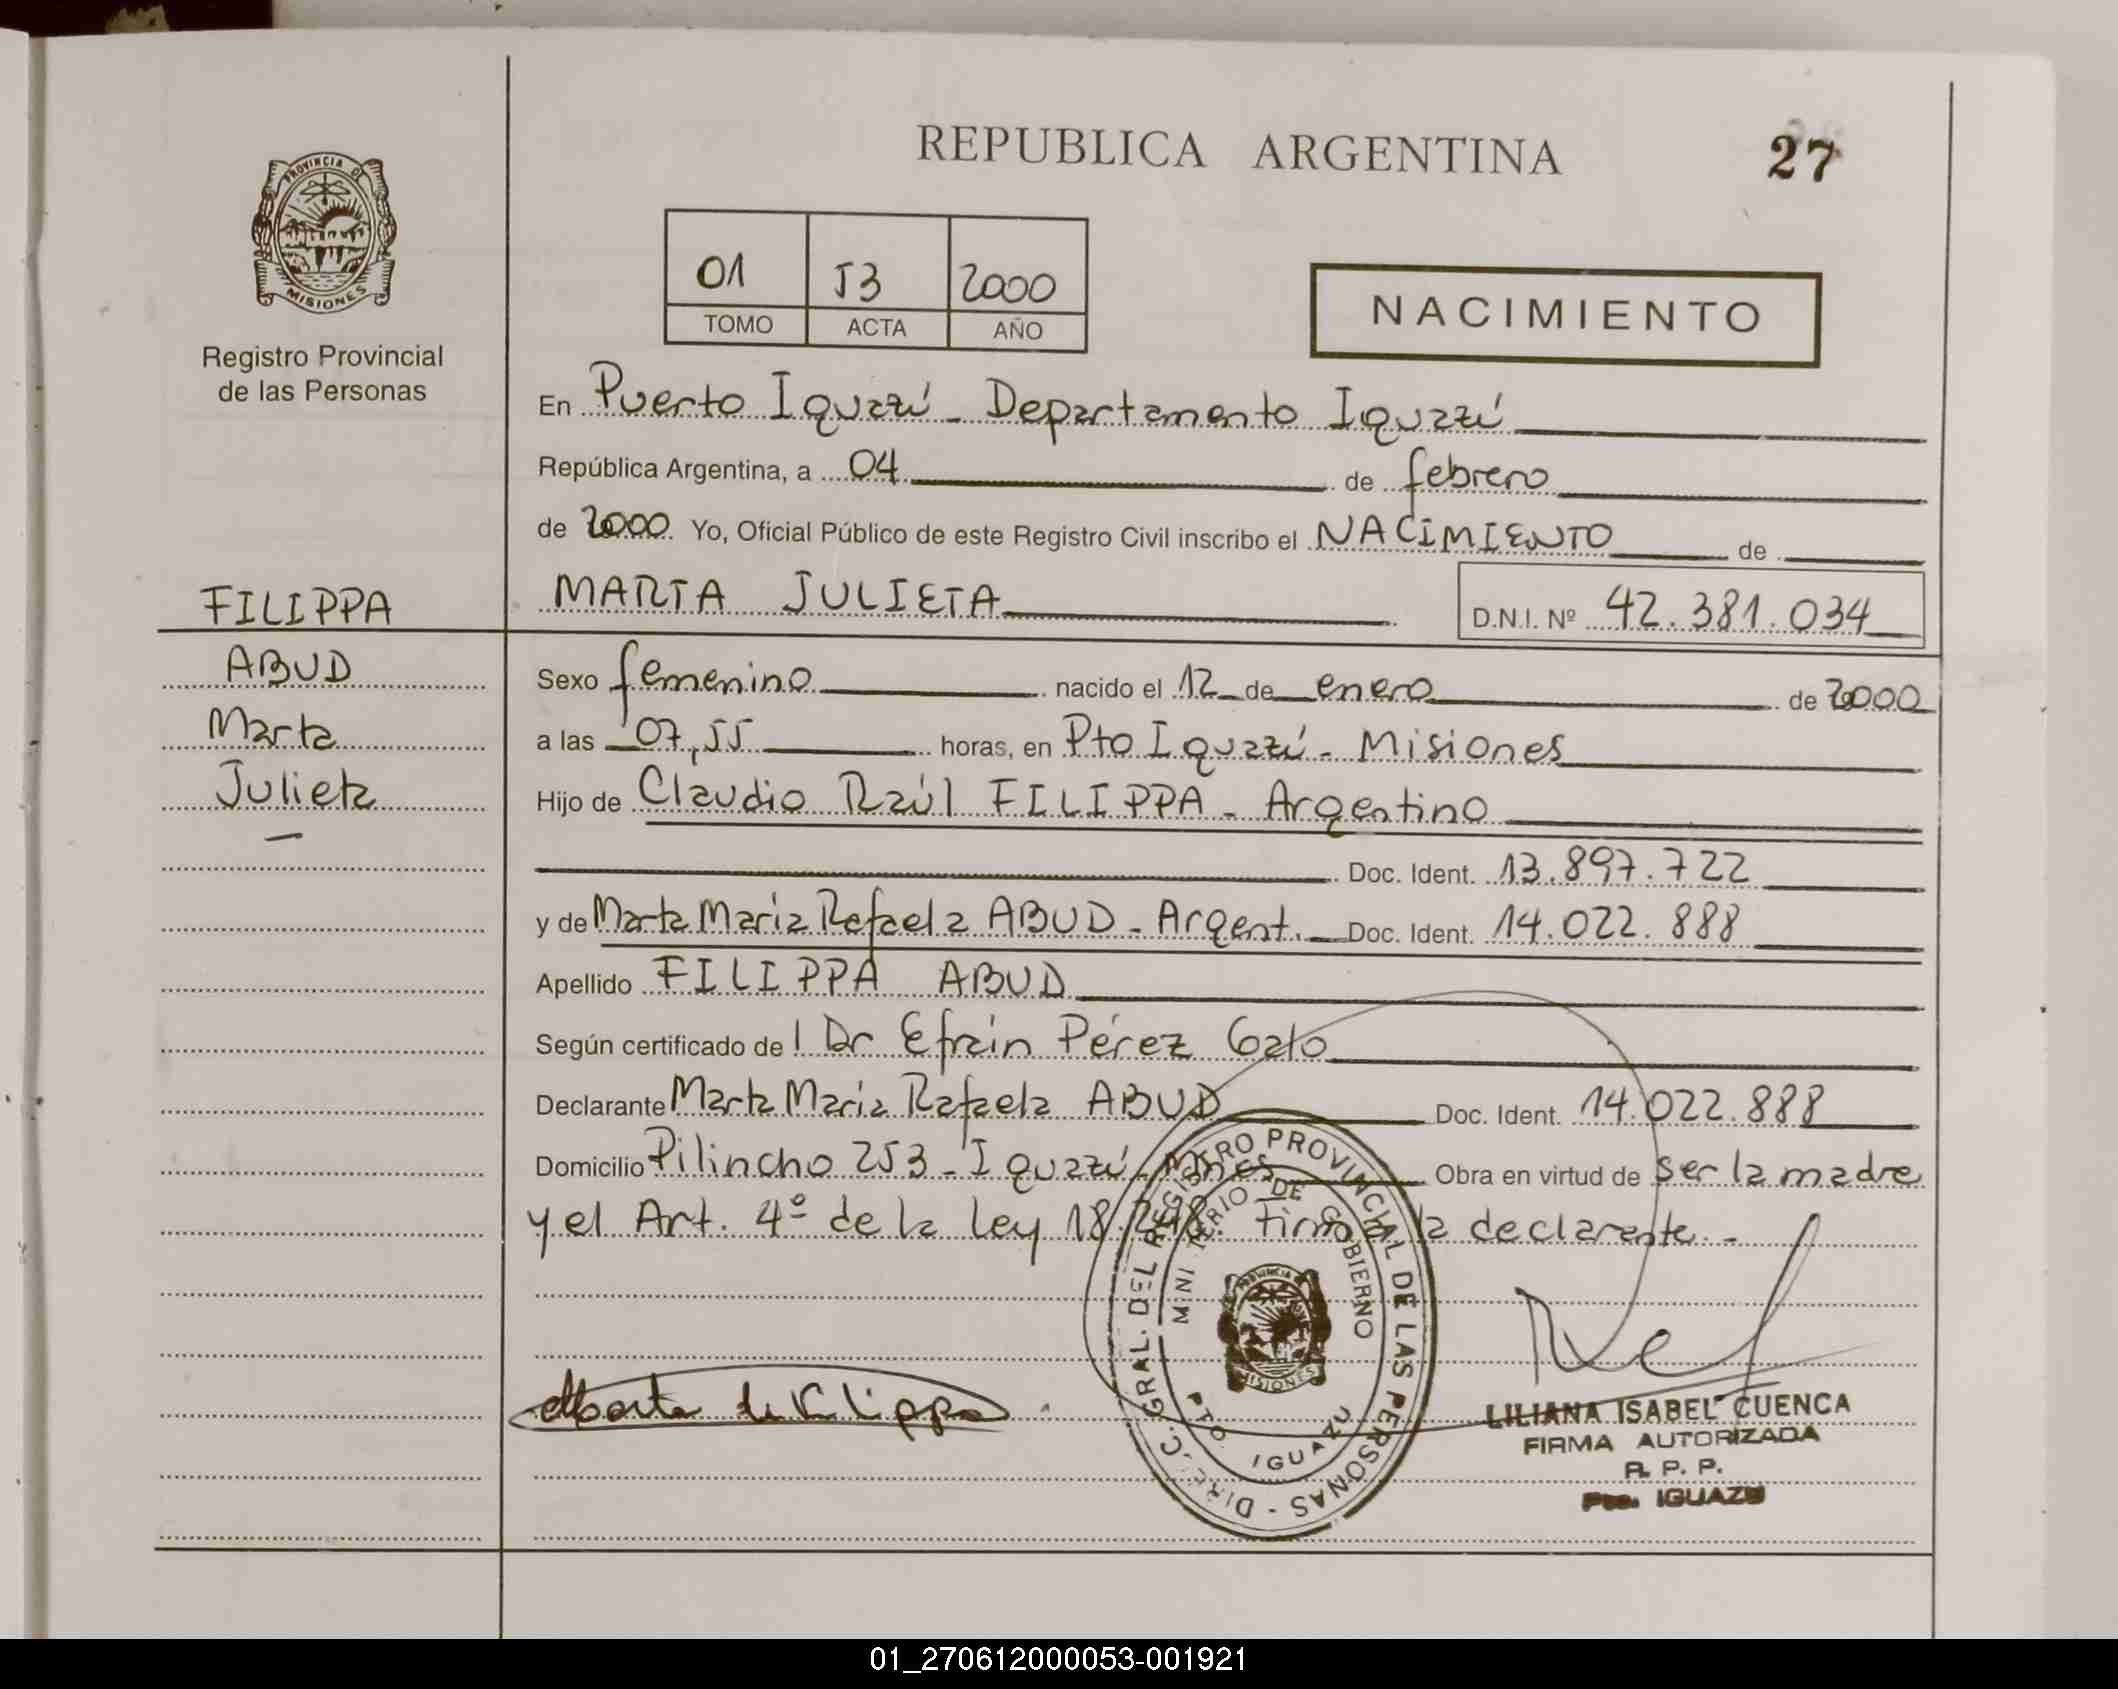 REPUBLICA ARGENTINA
27
PROVINCIA DE
MISIONES
Registro Provincial
de las Personas
01 53 2000
TOMO ACTA AÑO
NACIMIENTO
En Puerto Iguazú - Departamento Iguazú
República Argentina, a 04 de febrero
de 2000. Yo, Oficial Público de este Registro Civil inscribo el NACIMIENTO de
FILIPPA
MARTA JULIETA D.N.I. Nº 42.381.034
ABUD
Sexo femenino nacido el 12 de enero de 2000
Marta
a las 07,55 horas, en Pto Iguazú - Misiones
Julieta
Hijo de Claudio Raúl FILIPPA - Argentino
Doc. Ident. 13.897.722
y de Marta Maria Rafaela ABUD - Argent. Doc. Ident. 14.022.888
Apellido FILIPPA ABUD
Según certificado de l Dr Efrain Pérez Gato
Declarante Marta Maria Rafaela ABUD Doc. Ident. 14.022.888
Domicilio Pilincho 253 - Iguazú - Mnes Obra en virtud de ser la madre
y el Art. 4º de la Ley 18.248. Firma la declarante. -
DIREC. GRAL. DEL REGISTRO PROVINCIAL DE LAS PERSONAS -
MINISTERIO DE GOBIERNO
PROVINCIA
MISIONES
PTO. IGUAZU
de Filippa
LILIANA ISABEL CUENCA
FIRMA AUTORIZADA
R. P. P.
Pto. IGUAZU
01_270612000053-001921